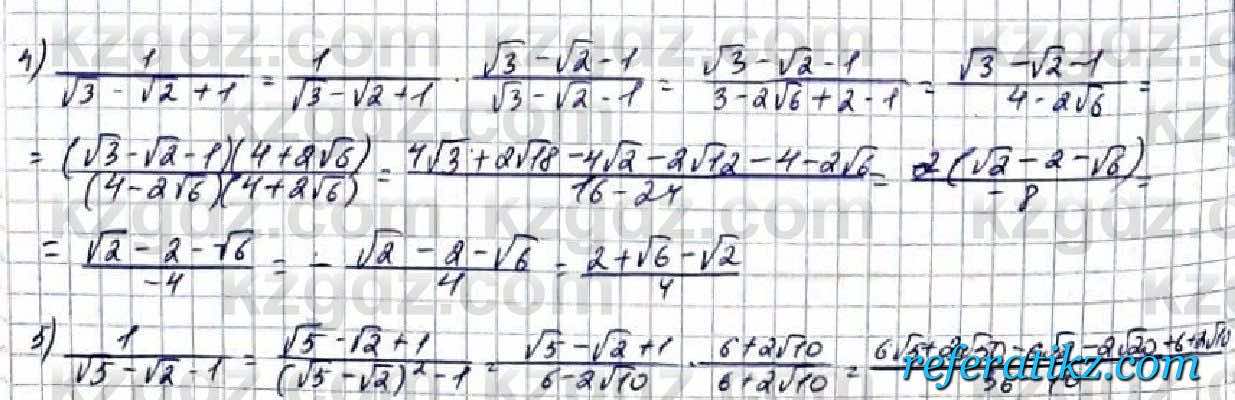 4) 1/(√3 - √2 + 1) = 1/(√3 - √2 + 1) · (√3 - √2 - 1)/(√3 - √2 - 1) = (√3 - √2 - 1)/(3 - 2√6 + 2 - 1) = (√3 - √2 - 1)/(4 - 2√6) =
= (√3 - √2 - 1)(4 + 2√6)/(4 - 2√6)(4 + 2√6) = (4√3 + 2√18 - 4√2 - 2√12 - 4 - 2√6)/(16 - 24) = 2(√2 - 2 - √6)/(-8) =
= (√2 - 2 - √6)/(-4) = - (√2 - 2 - √6)/4 = (2 + √6 - √2)/4
5) 1/(√5 - √2 - 1) = (√5 - √2 + 1)/((√5 - √2)² - 1) = (√5 - √2 + 1)/(6 - 2√10) · (6 + 2√10)/(6 + 2√10) =
referatikz.com